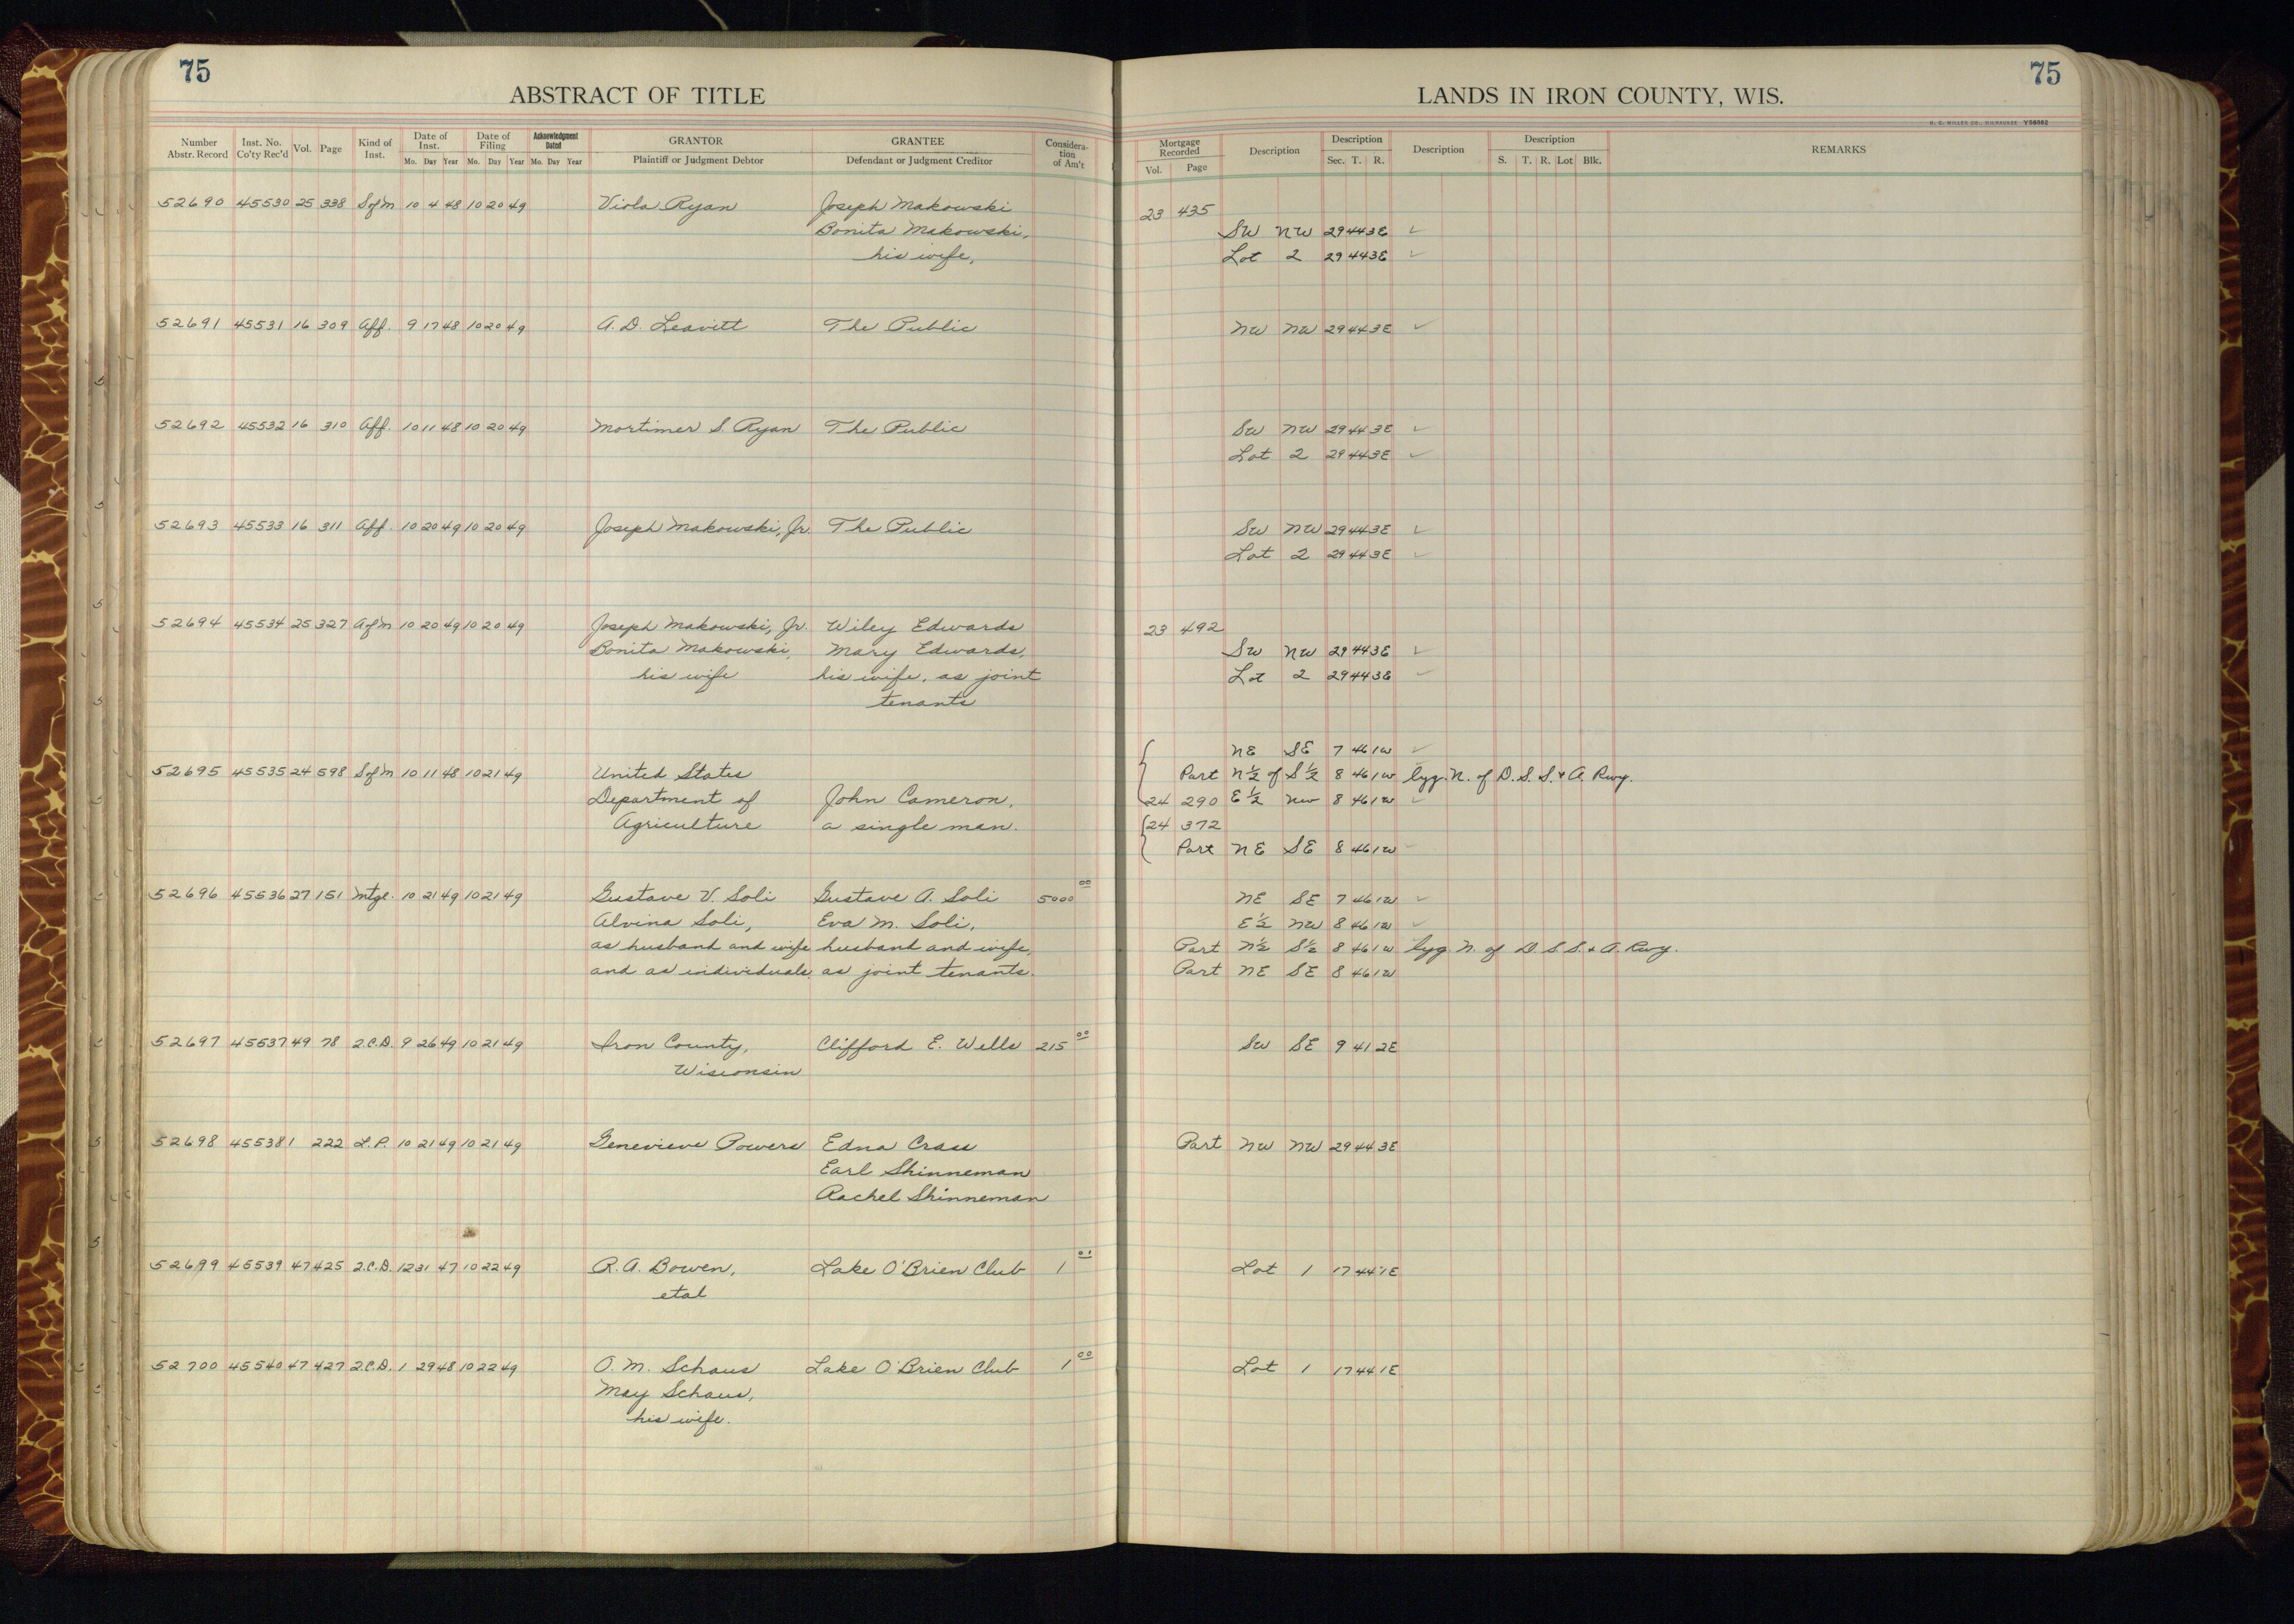 75
75
ABSTRACT OF TITLE
LANDS IN IRON COUNTY, WIS.
H. C. MILLER CO., MILWAUKEE Y56862
Number Abstr. Record | Inst. No. Co'ty Rec'd | Vol. | Page | Kind of Inst. | Date of Inst. Mo. Day Year | Date of Filing Mo. Day Year | Acknowledgment Dated Mo. Day Year | GRANTOR Plaintiff or Judgment Debtor | GRANTEE Defendant or Judgment Creditor | Considera-tion of Am't | Mortgage Recorded Vol. Page | Description | Description Sec. T. R. | Description | Description S. T. R. Lot Blk. | REMARKS
52690 45530 25 338 S of M 10 4 48 10 20 49 Viola Ryan Joseph Makowski 23 435
Bonita Makowski, SW NW 29 44 3E ✓
his wife, Lot 2 29 44 3E ✓
52691 45531 16 309 Aff. 9 17 48 10 20 49 A. D. Leavitt The Public NW NW 29 44 3E ✓
52692 45532 16 310 Aff. 10 11 48 10 20 49 Mortimer S. Ryan The Public SW NW 29 44 3E ✓
Lot 2 29 44 3E ✓
52693 45533 16 311 Aff. 10 20 49 10 20 49 Joseph Makowski, Jr. The Public SW NW 29 44 3E ✓
Lot 2 29 44 3E ✓
52694 45534 25 327 A of M 10 20 49 10 20 49 Joseph Makowski, Jr. Wiley Edwards 23 492
Bonita Makowski, Mary Edwards, SW NW 29 44 3E ✓
his wife his wife, as joint Lot 2 29 44 3E ✓
tenants
NE SE 7 46 1W ✓
52695 45535 24 598 S of M 10 11 48 10 21 49 United States Part N½ of S½ 8 46 1W lyg. N. of D. S. S. & A. Rwy.
Department of John Cameron, 24 290 E½ NW 8 46 1W ✓
Agriculture a single man. 24 372
Part NE SE 8 46 1W ✓
52696 45536 27 151 Mtge. 10 21 49 10 21 49 Gustave V. Soli Gustave A. Soli 5000 00 NE SE 7 46 1W ✓
Alvina Soli, Eva M. Soli, E½ NW 8 46 1W ✓
as husband and wife husband and wife, Part N½ S½ 8 46 1W lyg. N. of D. S. S. & A. Rwy.
and as individuals, as joint tenants. Part NE SE 8 46 1W
52697 45537 49 78 2.C.D. 9 26 49 10 21 49 Iron County, Clifford E. Wells 215 00 SW SE 9 41 2E
Wisconsin
52698 45538 1 222 L.P. 10 21 49 10 21 49 Genevieve Powers Edna Crass Part NW NW 29 44 3E
Earl Shinneman
Rachel Shinneman
52699 45539 47 425 2.C.D. 12 31 47 10 22 49 R. A. Bowen, Lake O'Brien Club 1 00 Lot 1 17 44 1E
etal
52700 45540 47 427 2.C.D. 1 29 48 10 22 49 O. M. Schaus Lake O'Brien Club 1 00 Lot 1 17 44 1E
May Schaus,
his wife.